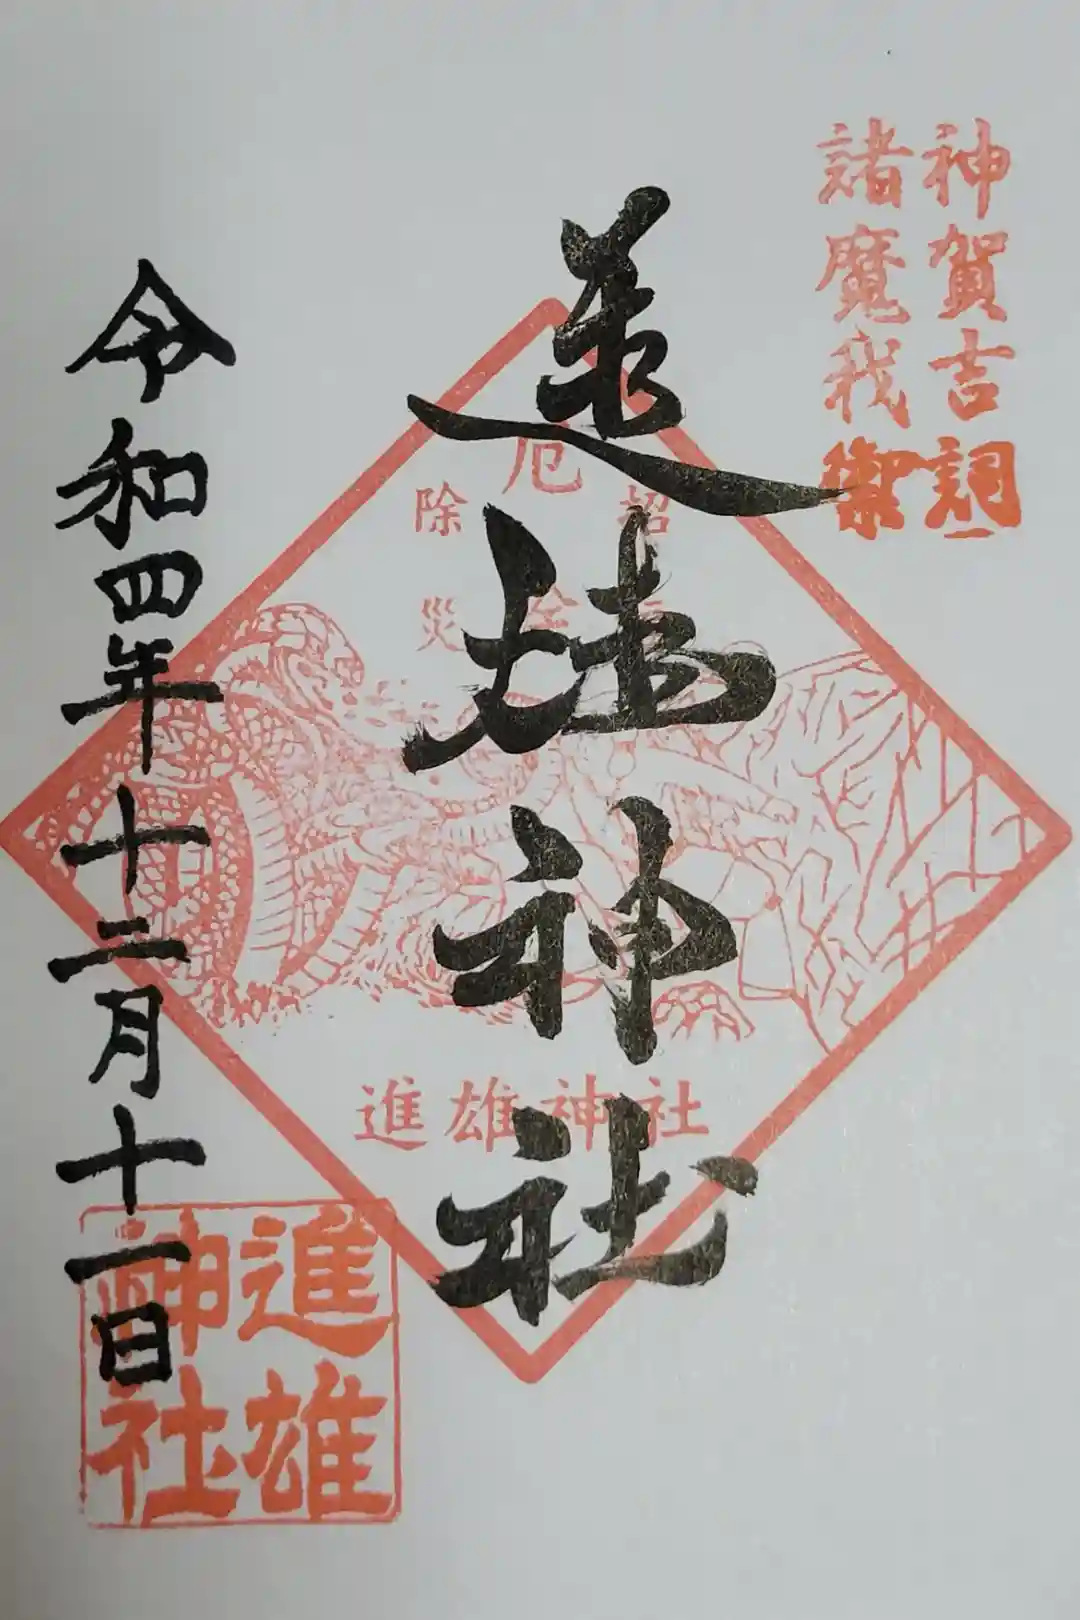 神賀吉詞
諸魔我禦
進雄神社
厄
除災
招
進雄神社
令和四年十二月十一日
進雄
神社